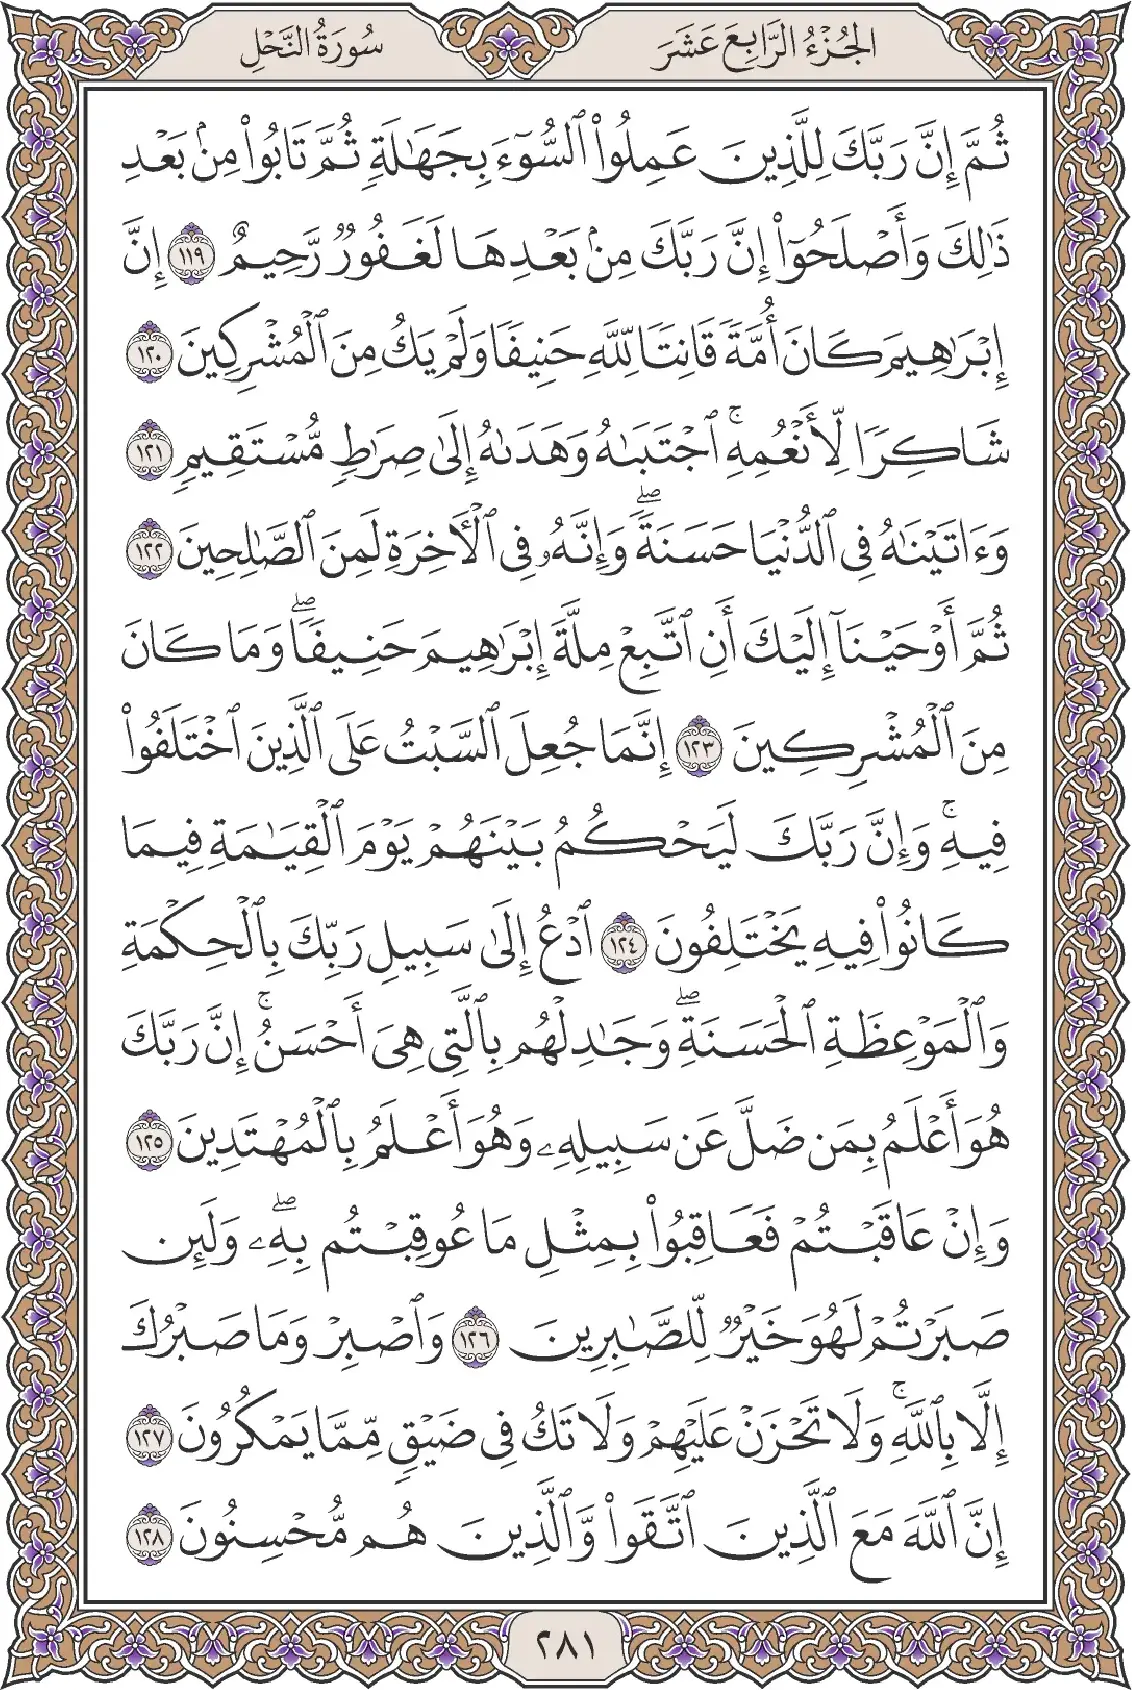 الجُزْءُ الرَّابِعَ عَشَرَ
سُورَةُ النَّحْلِ
ثُمَّ إِنَّ رَبَّكَ لِلَّذِينَ عَمِلُوا۟ ٱلسُّوٓءَ بِجَهَٰلَةٍۢ ثُمَّ تَابُوا۟ مِنۢ بَعْدِ
ذَٰلِكَ وَأَصْلَحُوٓا۟ إِنَّ رَبَّكَ مِنۢ بَعْدِهَا لَغَفُورٌۭ رَّحِيمٌ ١١٩ إِنَّ
إِبْرَٰهِيمَ كَانَ أُمَّةًۭ قَانِتًۭا لِّلَّهِ حَنِيفًۭا وَلَمْ يَكُ مِنَ ٱلْمُشْرِكِينَ ١٢٠
شَاكِرًۭا لِّأَنْعُمِهِ ۚ ٱجْتَبَىٰهُ وَهَدَىٰهُ إِلَىٰ صِرَٰطٍۢ مُّسْتَقِيمٍۢ ١٢١
وَءَاتَيْنَٰهُ فِى ٱلدُّنْيَا حَسَنَةًۭ ۖ وَإِنَّهُۥ فِى ٱلْـَٔاخِرَةِ لَمِنَ ٱلصَّٰلِحِينَ ١٢٢
ثُمَّ أَوْحَيْنَآ إِلَيْكَ أَنِ ٱتَّبِعْ مِلَّةَ إِبْرَٰهِيمَ حَنِيفًۭا ۖ وَمَا كَانَ
مِنَ ٱلْمُشْرِكِينَ ١٢٣ إِنَّمَا جُعِلَ ٱلسَّبْتُ عَلَى ٱلَّذِينَ ٱخْتَلَفُوا۟
فِيهِ ۚ وَإِنَّ رَبَّكَ لَيَحْكُمُ بَيْنَهُمْ يَوْمَ ٱلْقِيَٰمَةِ فِيمَا
كَانُوا۟ فِيهِ يَخْتَلِفُونَ ١٢٤ ٱدْعُ إِلَىٰ سَبِيلِ رَبِّكَ بِٱلْحِكْمَةِ
وَٱلْمَوْعِظَةِ ٱلْحَسَنَةِ ۖ وَجَٰدِلْهُم بِٱلَّتِى هِىَ أَحْسَنُ ۚ إِنَّ رَبَّكَ
هُوَ أَعْلَمُ بِمَن ضَلَّ عَن سَبِيلِهِۦ وَهُوَ أَعْلَمُ بِٱلْمُهْتَدِينَ ١٢٥
وَإِنْ عَاقَبْتُمْ فَعَاقِبُوا۟ بِمِثْلِ مَا عُوقِبْتُم بِهِۦ ۖ وَلَئِن
صَبَرْتُمْ لَهُوَ خَيْرٌۭ لِّلصَّٰبِرِينَ ١٢٦ وَٱصْبِرْ وَمَا صَبْرُكَ
إِلَّا بِٱللَّهِ ۚ وَلَا تَحْزَنْ عَلَيْهِمْ وَلَا تَكُ فِى ضَيْقٍۢ مِّمَّا يَمْكُرُونَ ١٢٧
إِنَّ ٱللَّهَ مَعَ ٱلَّذِينَ ٱتَّقَوا۟ وَّٱلَّذِينَ هُم مُّحْسِنُونَ ١٢٨
٢٨١